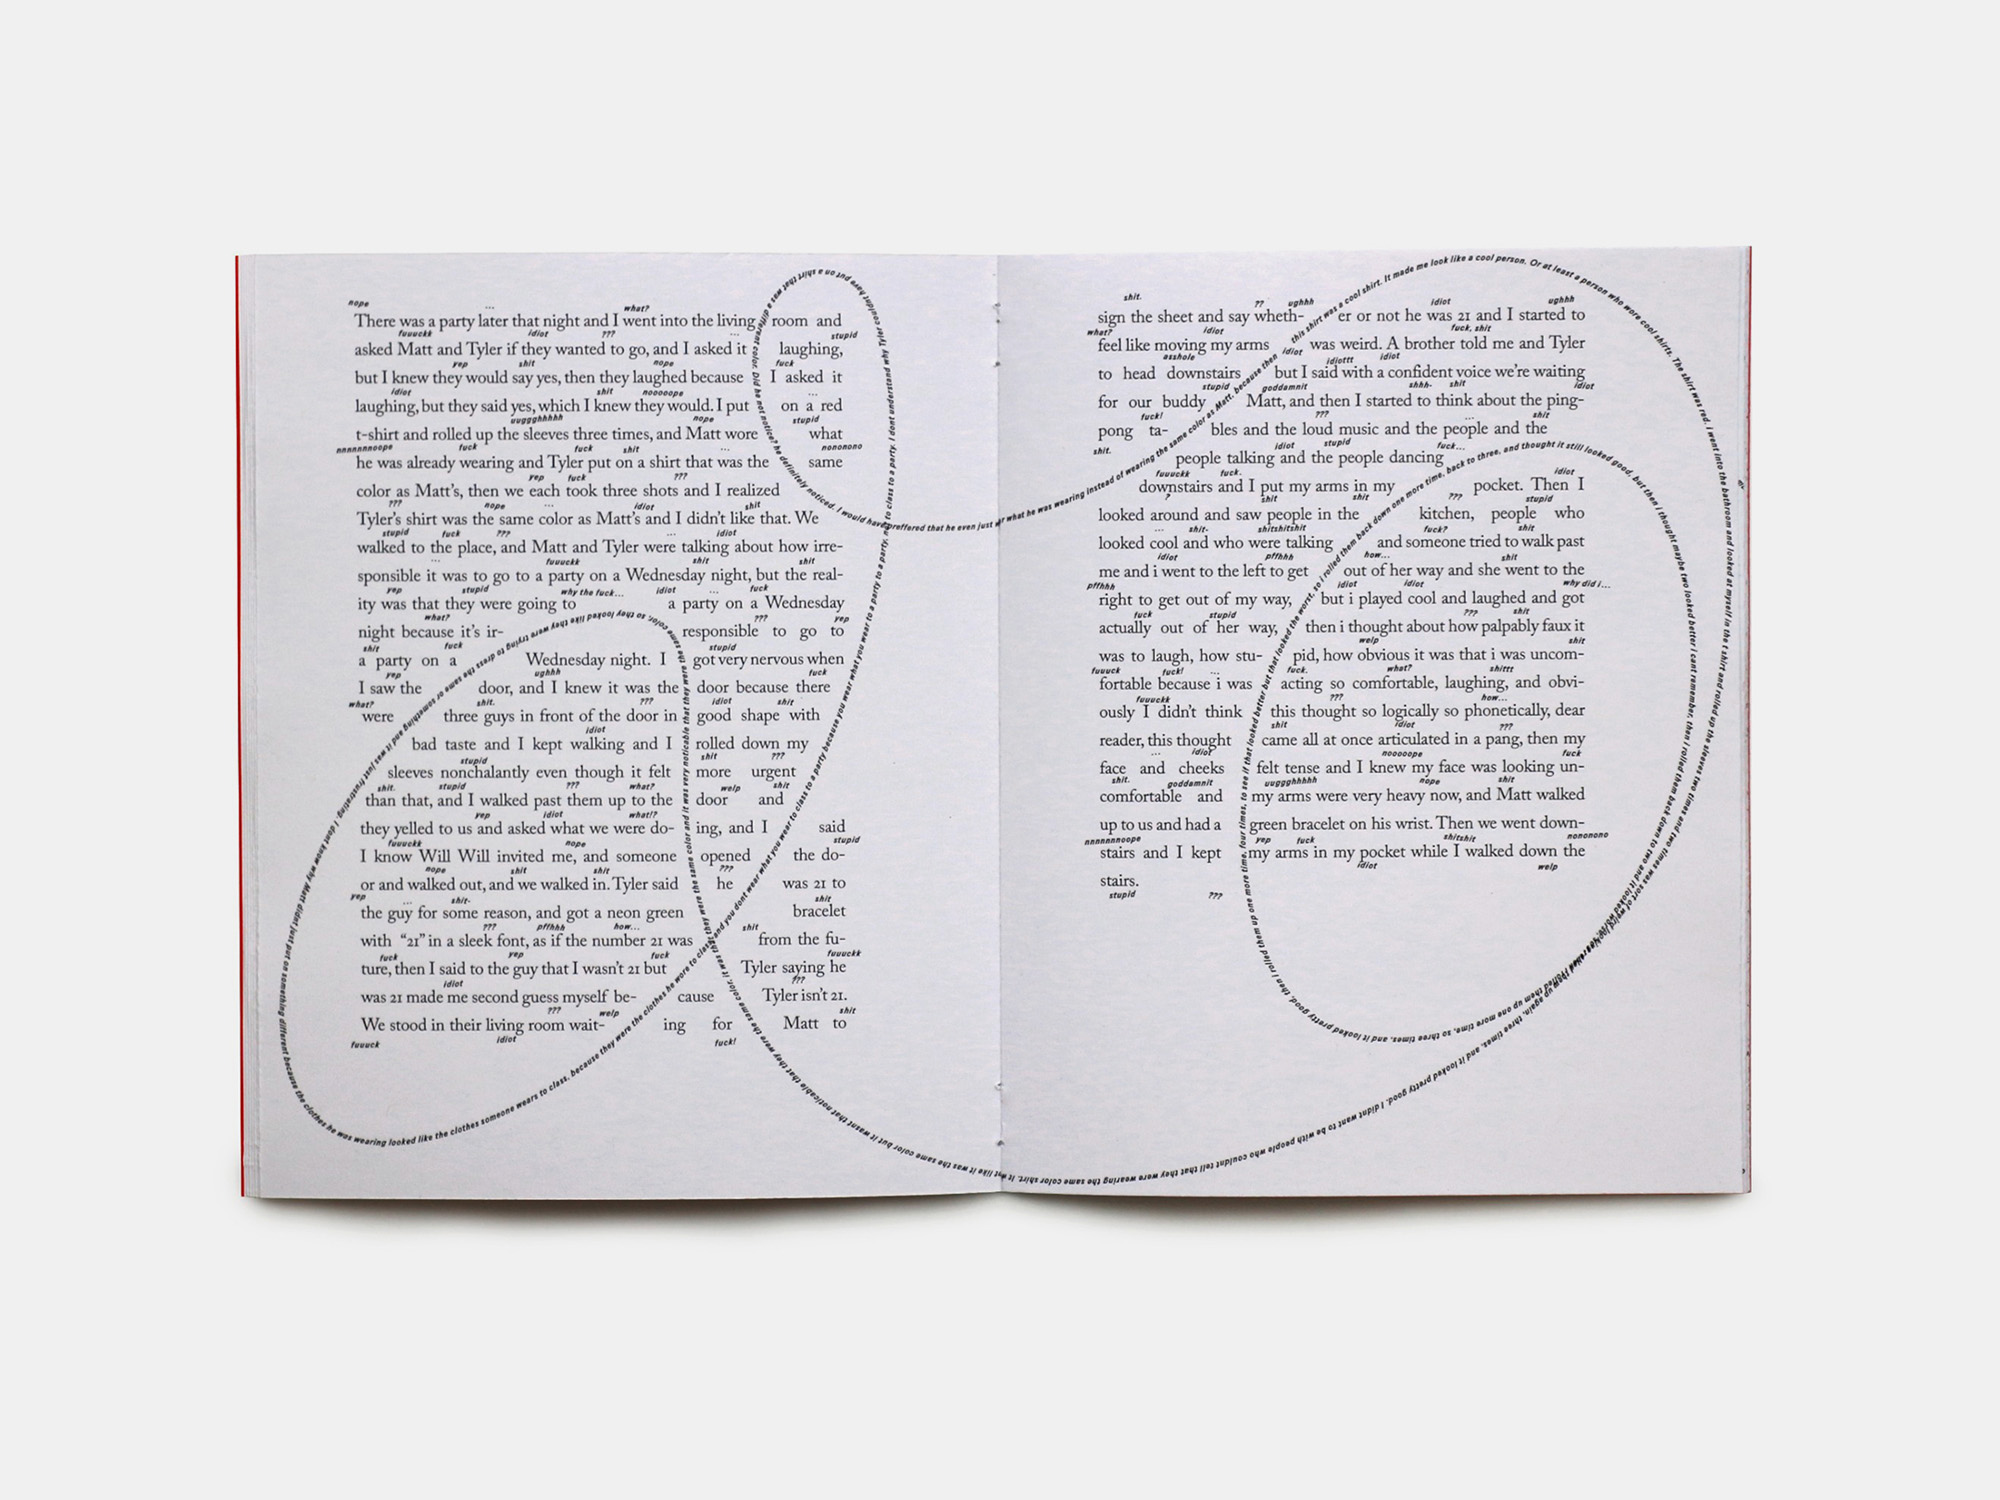 nope ... what?
There was a party later that night and I went into the living room and
fuuuckk idiot ??? stupid
asked Matt and Tyler if they wanted to go, and I asked it laughing,
yep shit nope fuck
but I knew they would say yes, then they laughed because I asked it
idiot shit nooooope ...
laughing, but they said yes, which I knew they would. I put on a red
uuggghhhhh nope stupid
t-shirt and rolled up the sleeves three times, and Matt wore what
nnnnnnnnoope fuck fuck shit ... nononono
he was already wearing and Tyler put on a shirt that was the same
yep fuck ???
color as Matt's, then we each took three shots and I realized
??? nope ... idiot shit
Tyler's shirt was the same color as Matt's and I didn't like that. We
stupid fuck ??? ... idiot
walked to the place, and Matt and Tyler were talking about how irre-
... fuuuckk shit shit
sponsible it was to go to a party on a Wednesday night, but the real-
yep stupid why the fuck... idiot ... fuck
ity was that they were going to a party on a Wednesday
what? ??? yep
night because it's ir- responsible to go to
shit fuck stupid
a party on a Wednesday night. I got very nervous when
yep ughhh fuck
I saw the door, and I knew it was the door because there
what? shit. ??? idiot shit
were three guys in front of the door in good shape with
idiot
bad taste and I kept walking and I rolled down my
stupid shit ???
sleeves nonchalantly even though it felt more urgent
shit. stupid ??? what? welp shit
than that, and I walked past them up to the door and
yep idiot what!?
they yelled to us and asked what we were do- ing, and I said
fuuuckk nope stupid
I know Will Will invited me, and someone opened the do-
nope shit shit ???
or and walked out, and we walked in. Tyler said he was 21 to
yep ... shit- shit
the guy for some reason, and got a neon green bracelet
??? pffhhh how... shit
with “21” in a sleek font, as if the number 21 was from the fu-
fuck yep fuck fuuuckk
ture, then I said to the guy that I wasn't 21 but Tyler saying he
idiot ???
was 21 made me second guess myself be- cause Tyler isn't 21.
??? welp shit
We stood in their living room wait- ing for Matt to
fuuuck idiot fuck!
shit. ?? ughhh idiot ughhh
sign the sheet and say wheth- er or not he was 21 and I started to
what? idiot fuck, shit
feel like moving my arms was weird. A brother told me and Tyler
asshole idiot idiottt idiot
to head downstairs but I said with a confident voice we're waiting
stupid goddamnit shhh- shit idiot
for our buddy Matt, and then I started to think about the ping-
fuck! ??? ... shit
pong ta- bles and the loud music and the people and the
shit. idiot stupid fuck...
people talking and the people dancing
fuuuckk fuck. idiot
downstairs and I put my arms in my pocket. Then I
? shit shit ??? stupid
looked around and saw people in the kitchen, people who
... shit- shitshitshit fuck? shit
looked cool and who were talking and someone tried to walk past
idiot pffhhh how... shit
me and i went to the left to get out of her way and she went to the
pffhhh idiot idiot why did i...
right to get out of my way, but i played cool and laughed and got
fuck stupid ??? shit
actually out of her way, then i thought about how palpably faux it
welp shit
was to laugh, how stu- pid, how obvious it was that i was uncom-
fuuuck fuck! ... fuck. what? shittt
fortable because i was acting so comfortable, laughing, and obvi-
fuuuckk ??? how...
ously I didn't think this thought so logically so phonetically, dear
shit idiot ???
reader, this thought came all at once articulated in a pang, then my
... idiot nooooope fuck
face and cheeks felt tense and I knew my face was looking un-
shit. goddamnit uuggghhhhh nope shit
comfortable and my arms were very heavy now, and Matt walked
up to us and had a green bracelet on his wrist. Then we went down-
nnnnnnnnoope yep fuck shitshit nononono
stairs and I kept my arms in my pocket while I walked down the
idiot welp
stairs.
stupid ???
this shirt was a cool shirt. It made me look like a cool person. Or at least a person who wore cool shirts. The shirt was red. i went into the bathroom and looked at myself in the t shirt and rolled up the sleeves two times and two times was sort of weird
then i rolled them up one more time, so three times, and it looked pretty good, then i rolled them up one more time, four times, to see if that looked better but that looked the worst, so i rolled them back down one more time, back to three, and thought it still looked good, but then i thought maybe two looked better i cant remember, then i rolled them back down to two and it looked
up again, three times, and it looked pretty good. I didnt want to be with people who couldnt tell that they were wearing the same color shirt. It was like it was the same color but it wasnt that noticable that they were the same color, it was that they were the same color and it was very noticable that they were the same color, so they looked like they were trying to dress the same or something and it was just frustrating. I dont know why Matt didnt just put on something different because the clothes he was wearing looked like the clothes someone wears to class, because they were the clothes he wore to class and you dont wear what you wear to class to a party because you wear what you wear to a party to a party, not to class to a party. I dont understand why Tyler couldnt have put on a shirt that was a different color. Did he not notice? he definitely noticed. I would have preffered that he even just wear what he was wearing instead of wearing the same color as Matt. because then